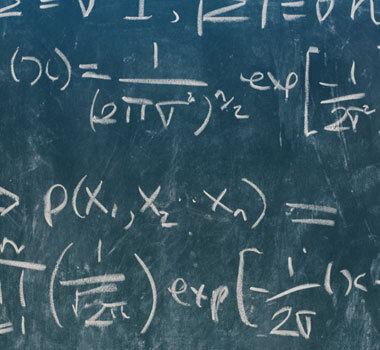 (x) = 1/(2πσ²)^n/2 exp[-1/2σ²
> p(X₁, X₂ ·· Xₙ) =
n ∏ (1/√2π) exp[-1/2σ (x -